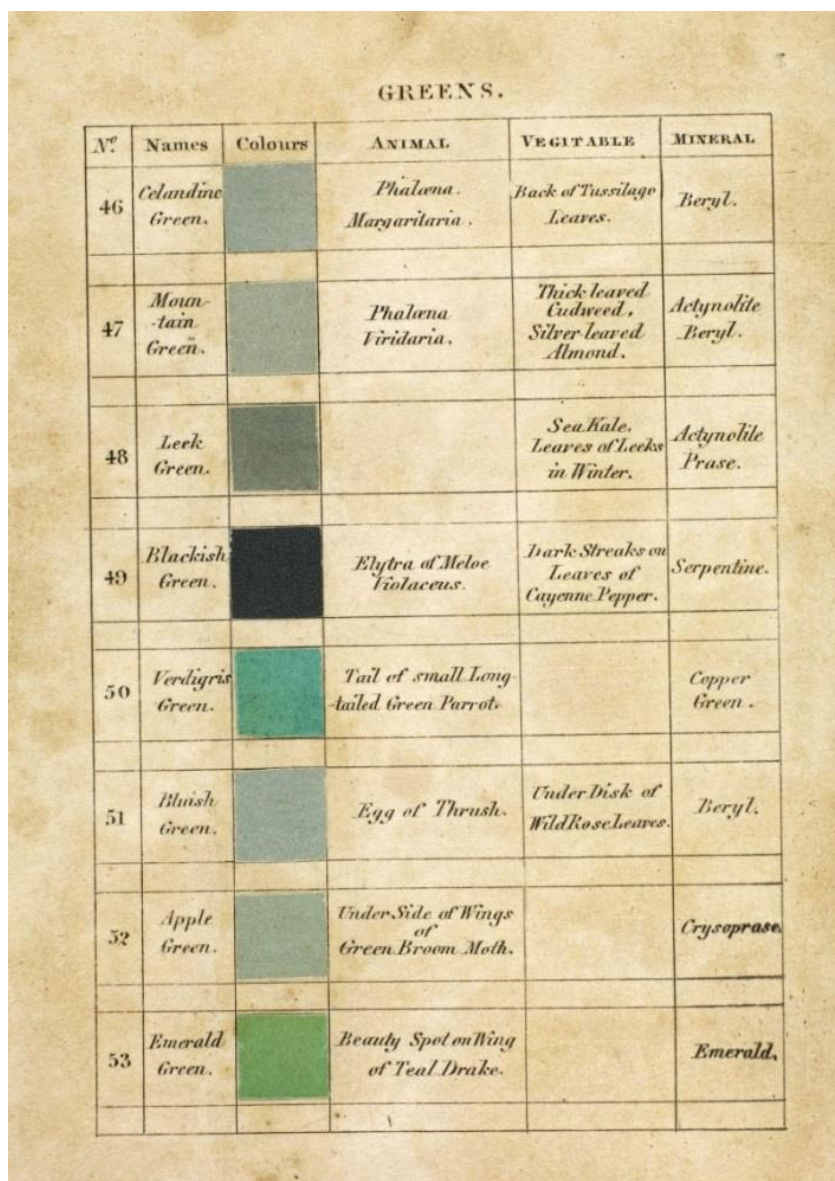 GREENS.
No. Names Colours ANIMAL VEGITABLE MINERAL
46 Celandine Green. Phalœna. Margaritaria. Back of Tussilago Leaves. Beryl.
47 Moun- -tain Green. Phalœna Viridaria. Thick leaved Cudweed, Silver-leaved Almond. Actynolite Beryl.
48 Leek Green. Sea Kale. Leaves of Leeks in Winter. Actynolite Prase.
49 Blackish Green. Elytra of Meloe Violaceus. Dark Streaks on Leaves of Cayenne Pepper. Serpentine.
50 Verdigris Green. Tail of small Long- -tailed Green Parrot. Copper Green.
51 Bluish Green. Egg of Thrush. Under Disk of Wild Rose Leaves. Beryl.
52 Apple Green. Under Side of Wings of Green Broom Moth. Crysoprase.
53 Emerald Green. Beauty Spot on Wing of Teal Drake. Emerald.